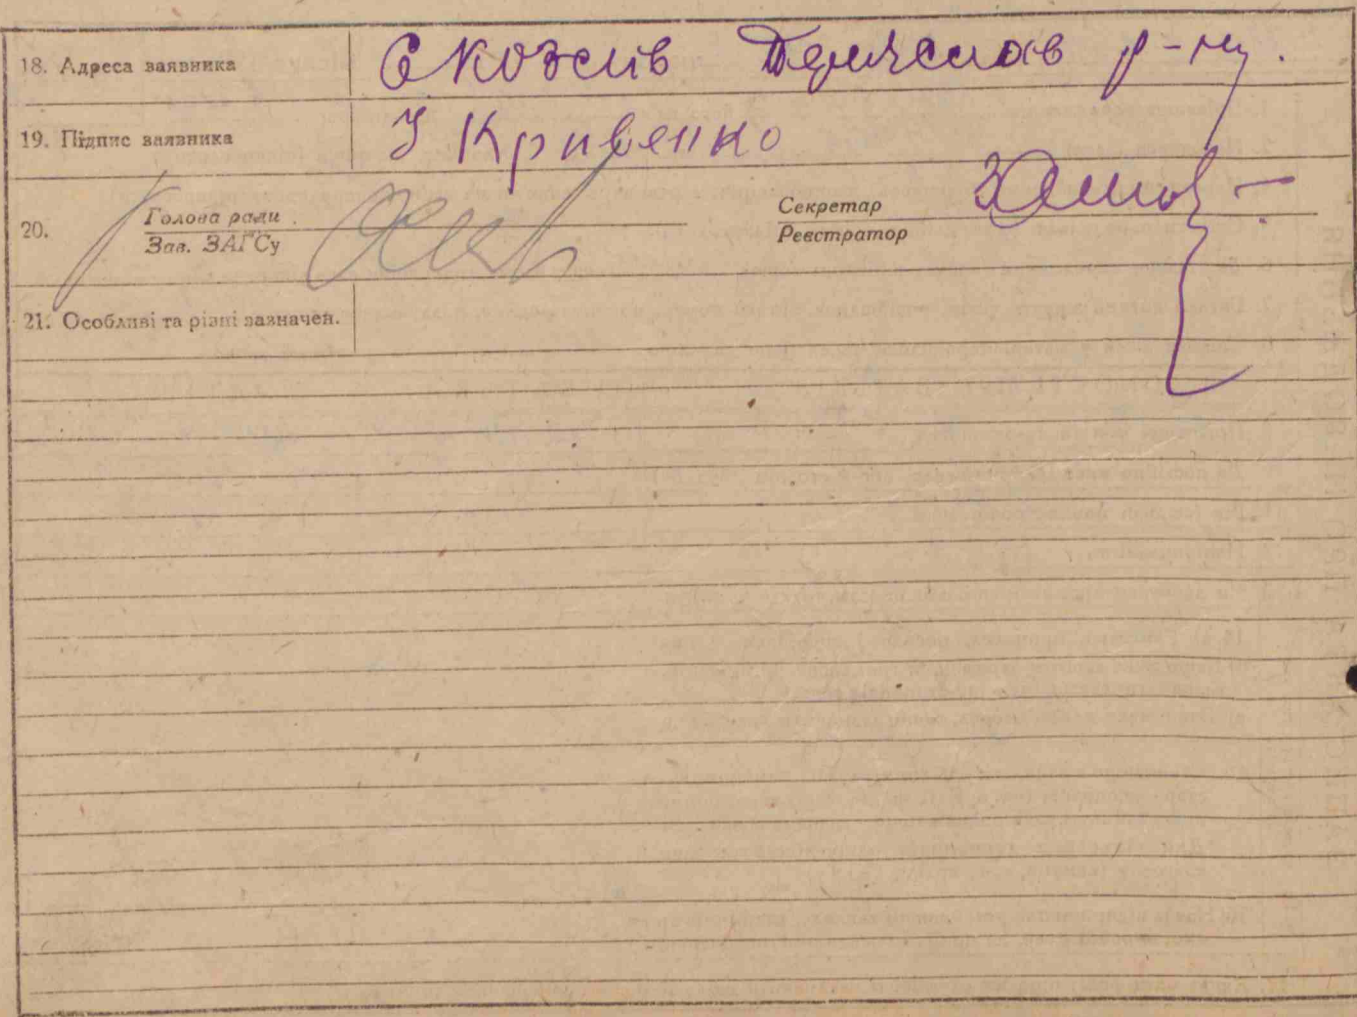 18. Адреса заявника С Козлів Переяслав р-ну.
19. Підпис заявника У Кривенко
20. Голова ради
Зав. ЗАГСу
Секретар
Реєстратор
21. Особливі та різні зазначен.